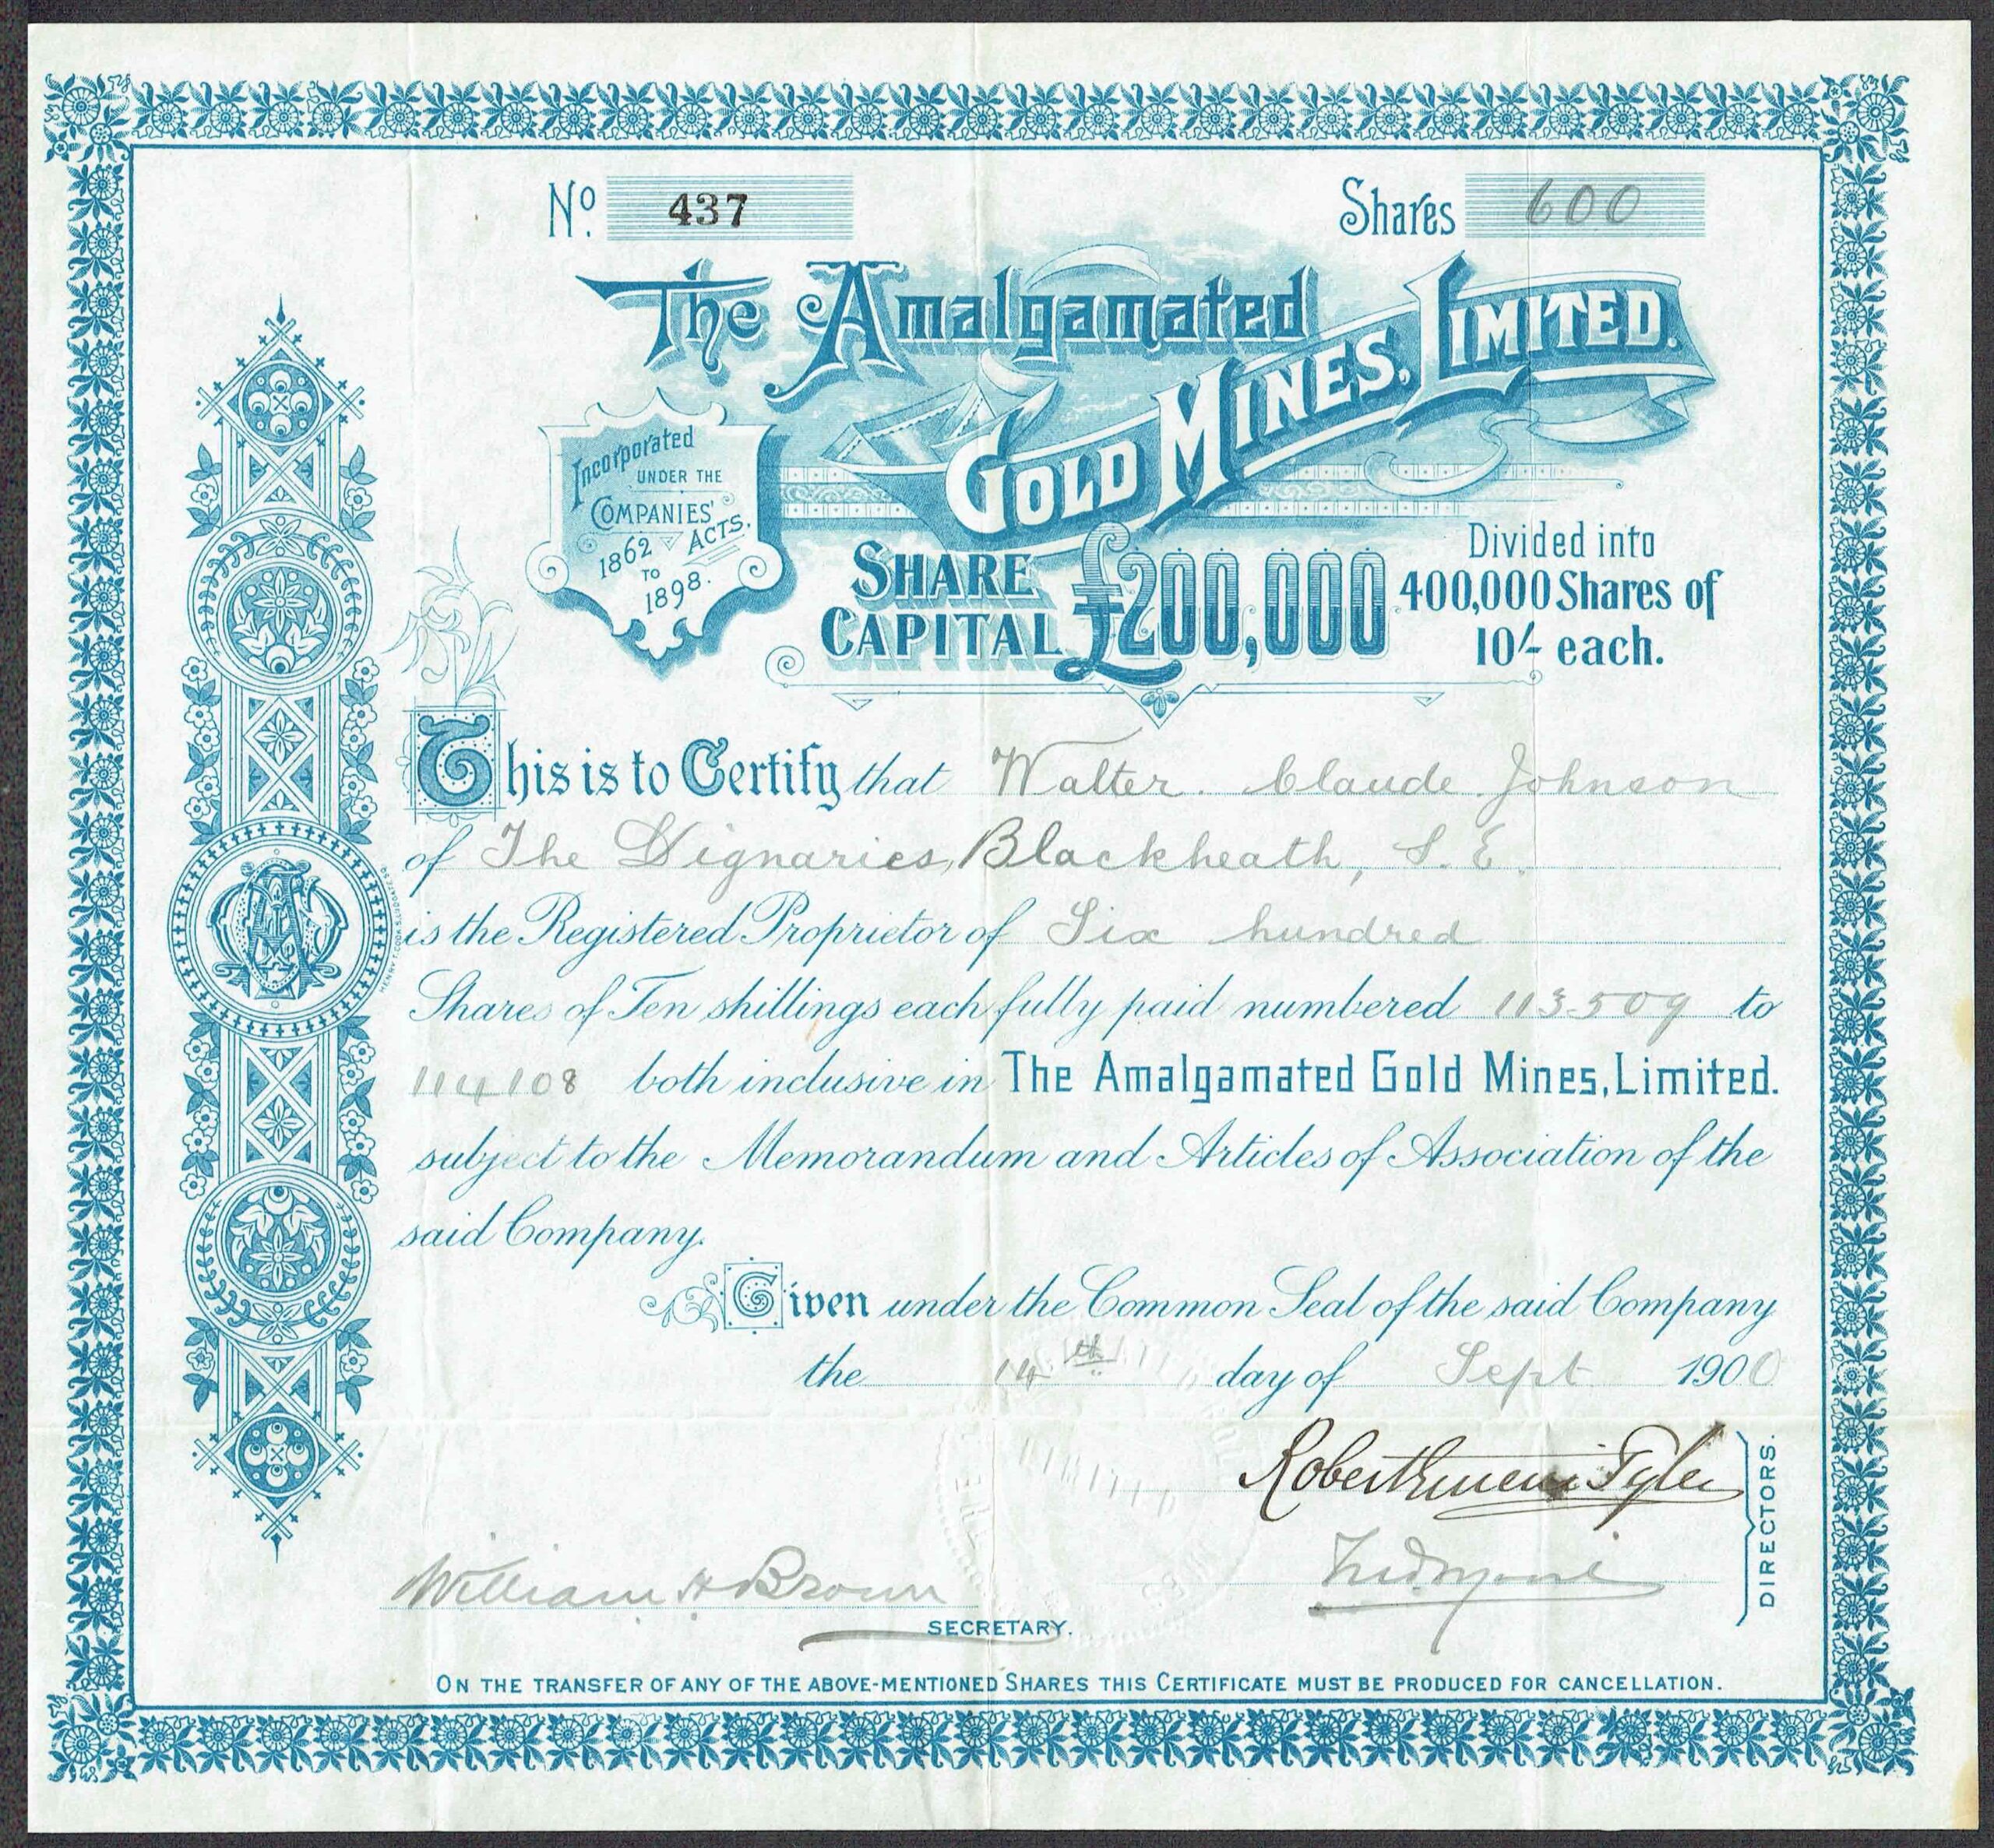 No. 437 Shares 600
The Amalgamated
Gold Mines, Limited.
Incorporated
UNDER THE
COMPANIES' ACTS.
1862 TO 1898.
SHARE CAPITAL £200,000
Divided into
400,000 Shares of
10/- each.
This is to Certify that Walter Claude Johnson
of The Dignaries, Blackheath, S. E.
is the Registered Proprietor of Six hundred
Shares of Ten shillings each fully paid numbered 113509 to
114108 both inclusive in The Amalgamated Gold Mines, Limited.
subject to the Memorandum and Articles of Association of the
said Company.
Given under the Common Seal of the said Company
the 14th day of Sept 1900
Tyler
DIRECTORS.
William H Brown
SECRETARY.
ON THE TRANSFER OF ANY OF THE ABOVE-MENTIONED SHARES THIS CERTIFICATE MUST BE PRODUCED FOR CANCELLATION.